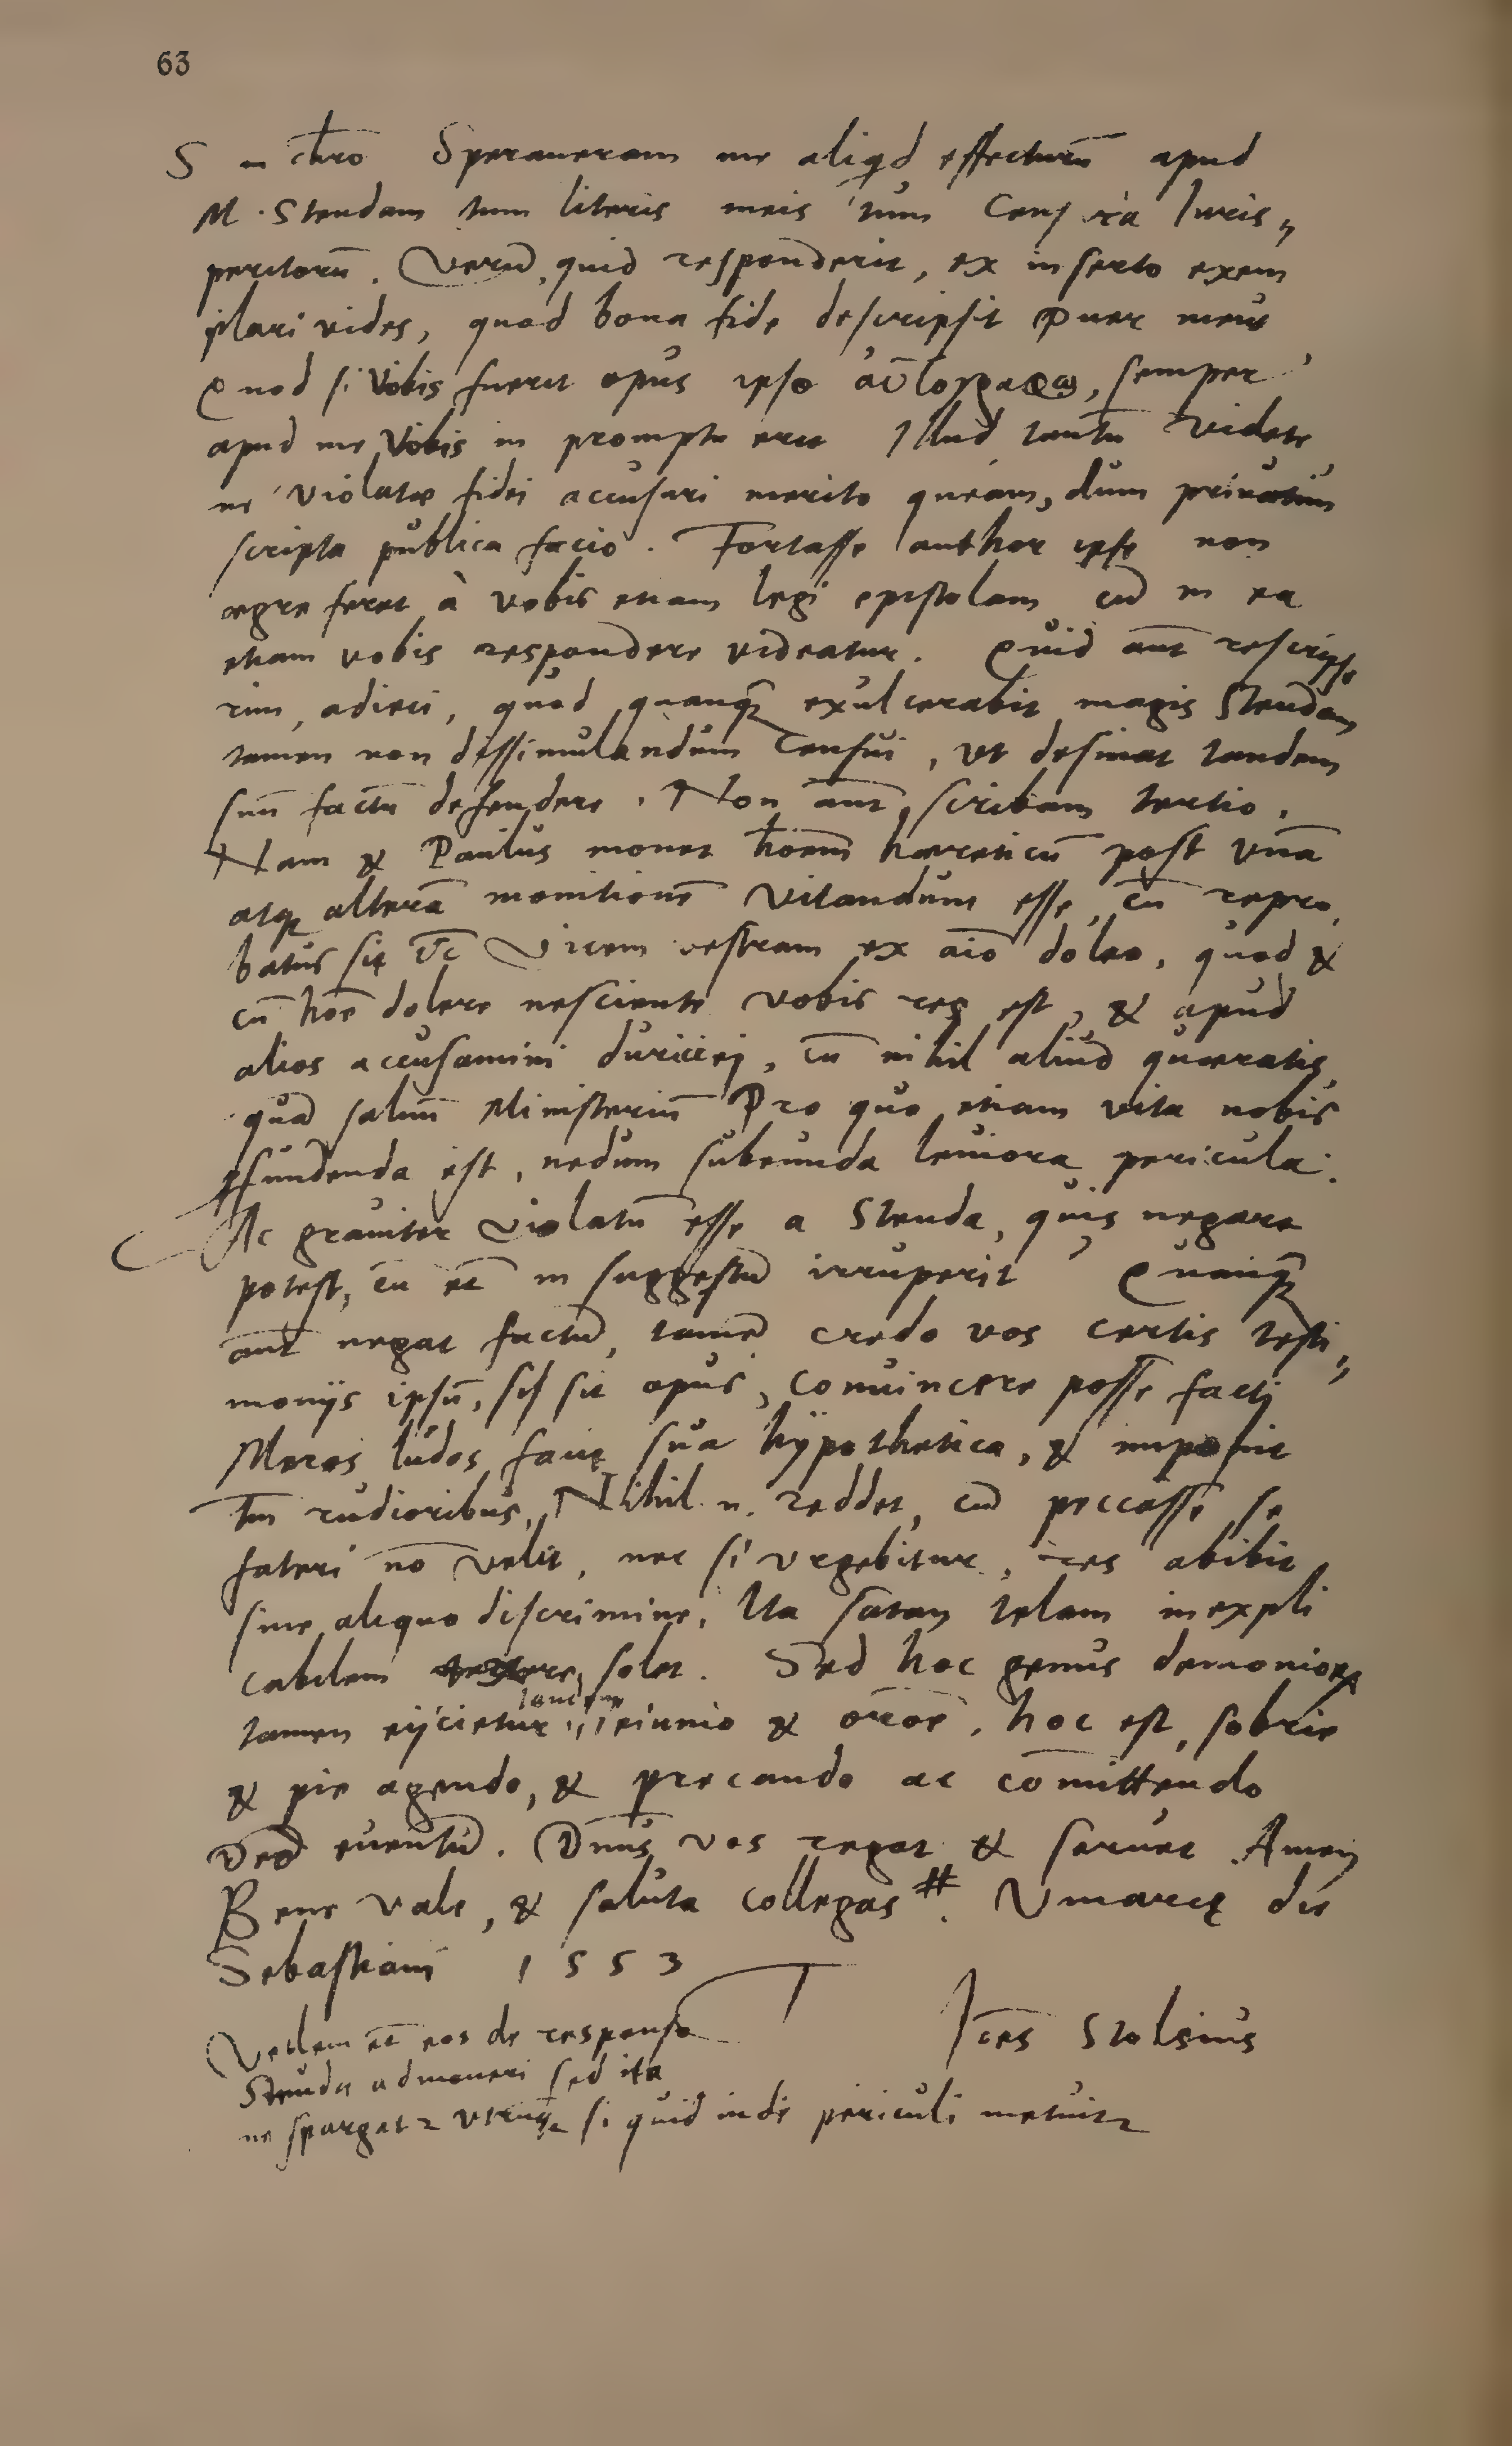 63
S in chro Speraueram me aliqd effecturū apud
M. Stendam tum literis meis tum Censura Iuris„
peritorū. Verū quid responderit, ex inserto exem
plari vides, quod bona fide descripsit puer meus
Quod si vobis fuerit opus ipso αὐτογράφῳ, semper
apud me vobis in promptu erit Illud tantū videte
ne violatæ fidei accusari merito queam, dum priuatim
scripta publica facio. Fortasse author ipse non
ægre feret à vobis etiam legi epistolam cū in ea
etiam vobis respondere videatur. Quid aut̄ rescripse
rim, adieci, quod quanq̃ exulcerabit magis Stendam
tamen non dissimulandum censui, vt desinat tandem
suū factū defendere. Non aut̄ scribam tertio.
Nam & Paulus monet hōiem hæreticū post vnā
atq alterā monitionē vitandum esse, cū repro
batus sit &c Vicem vestram ex aīo doleo, quod &
cū hōīe dolere nesciente vobis res est, & apud
alios accusamini duriciei, cū nihil aliud quæratis,
quā saluū Ministeriū Pro quo etiam vita nobis
effundenda est, nedum subeunda leuiora pericula.
Ac grauiter violatū esse a Stenda, quis negare
potest, cū et̄ in suggestū irruperit Quanq̃
aut̄ negat factū, tamē credo vos certis testi„
moniis ipsū, si sit opus, conuincere posse facti
Meros ludos facit sua hypothetica, & imponit
tm̄ rudioribus. Nihil n. reddet, cū peccasse se
fateri nō velit, nec si vrgebitur, res abibit
sine aliquo discrimine. Ita satan telam inexpli
cabilem texere solet. Sed hoc genus demoniorū
tandem
tamen eijcietur ieiunio & orōe, hoc est, sobrie
& pie agendo, & precando ac cōmittendo
Deo euentū. Dnūs vos regat & seruet Amen
Bene vale, & saluta collegas #. Vmariæ die
Sebastiani 1553
Ioēs Stolsius
Vellem et̄ eos de responso
Stenda admoneri sed ita
ne spargatr vtrinq si quid inde periculi metuitr